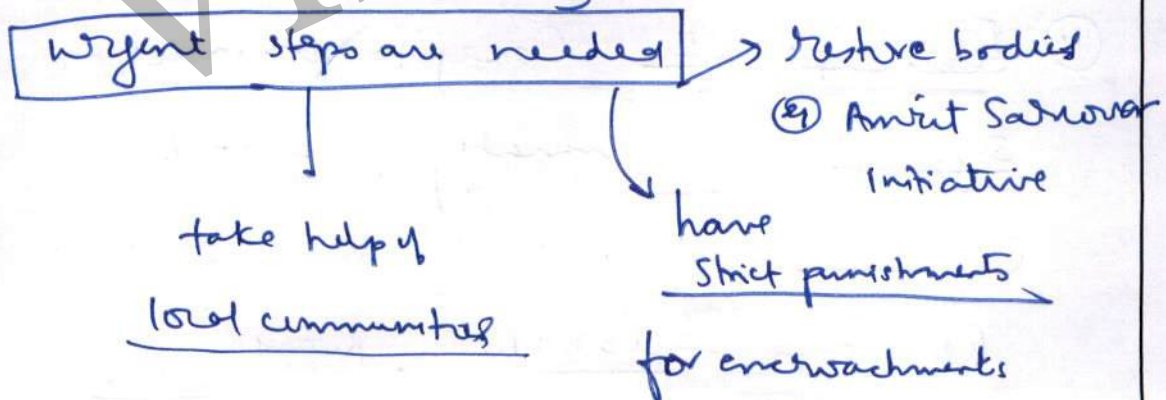 Urgent steps are needed
restore bodies
eg Amrit Sarover
Initiative
take help of
local communities
have
Strict punishments
for encroachments